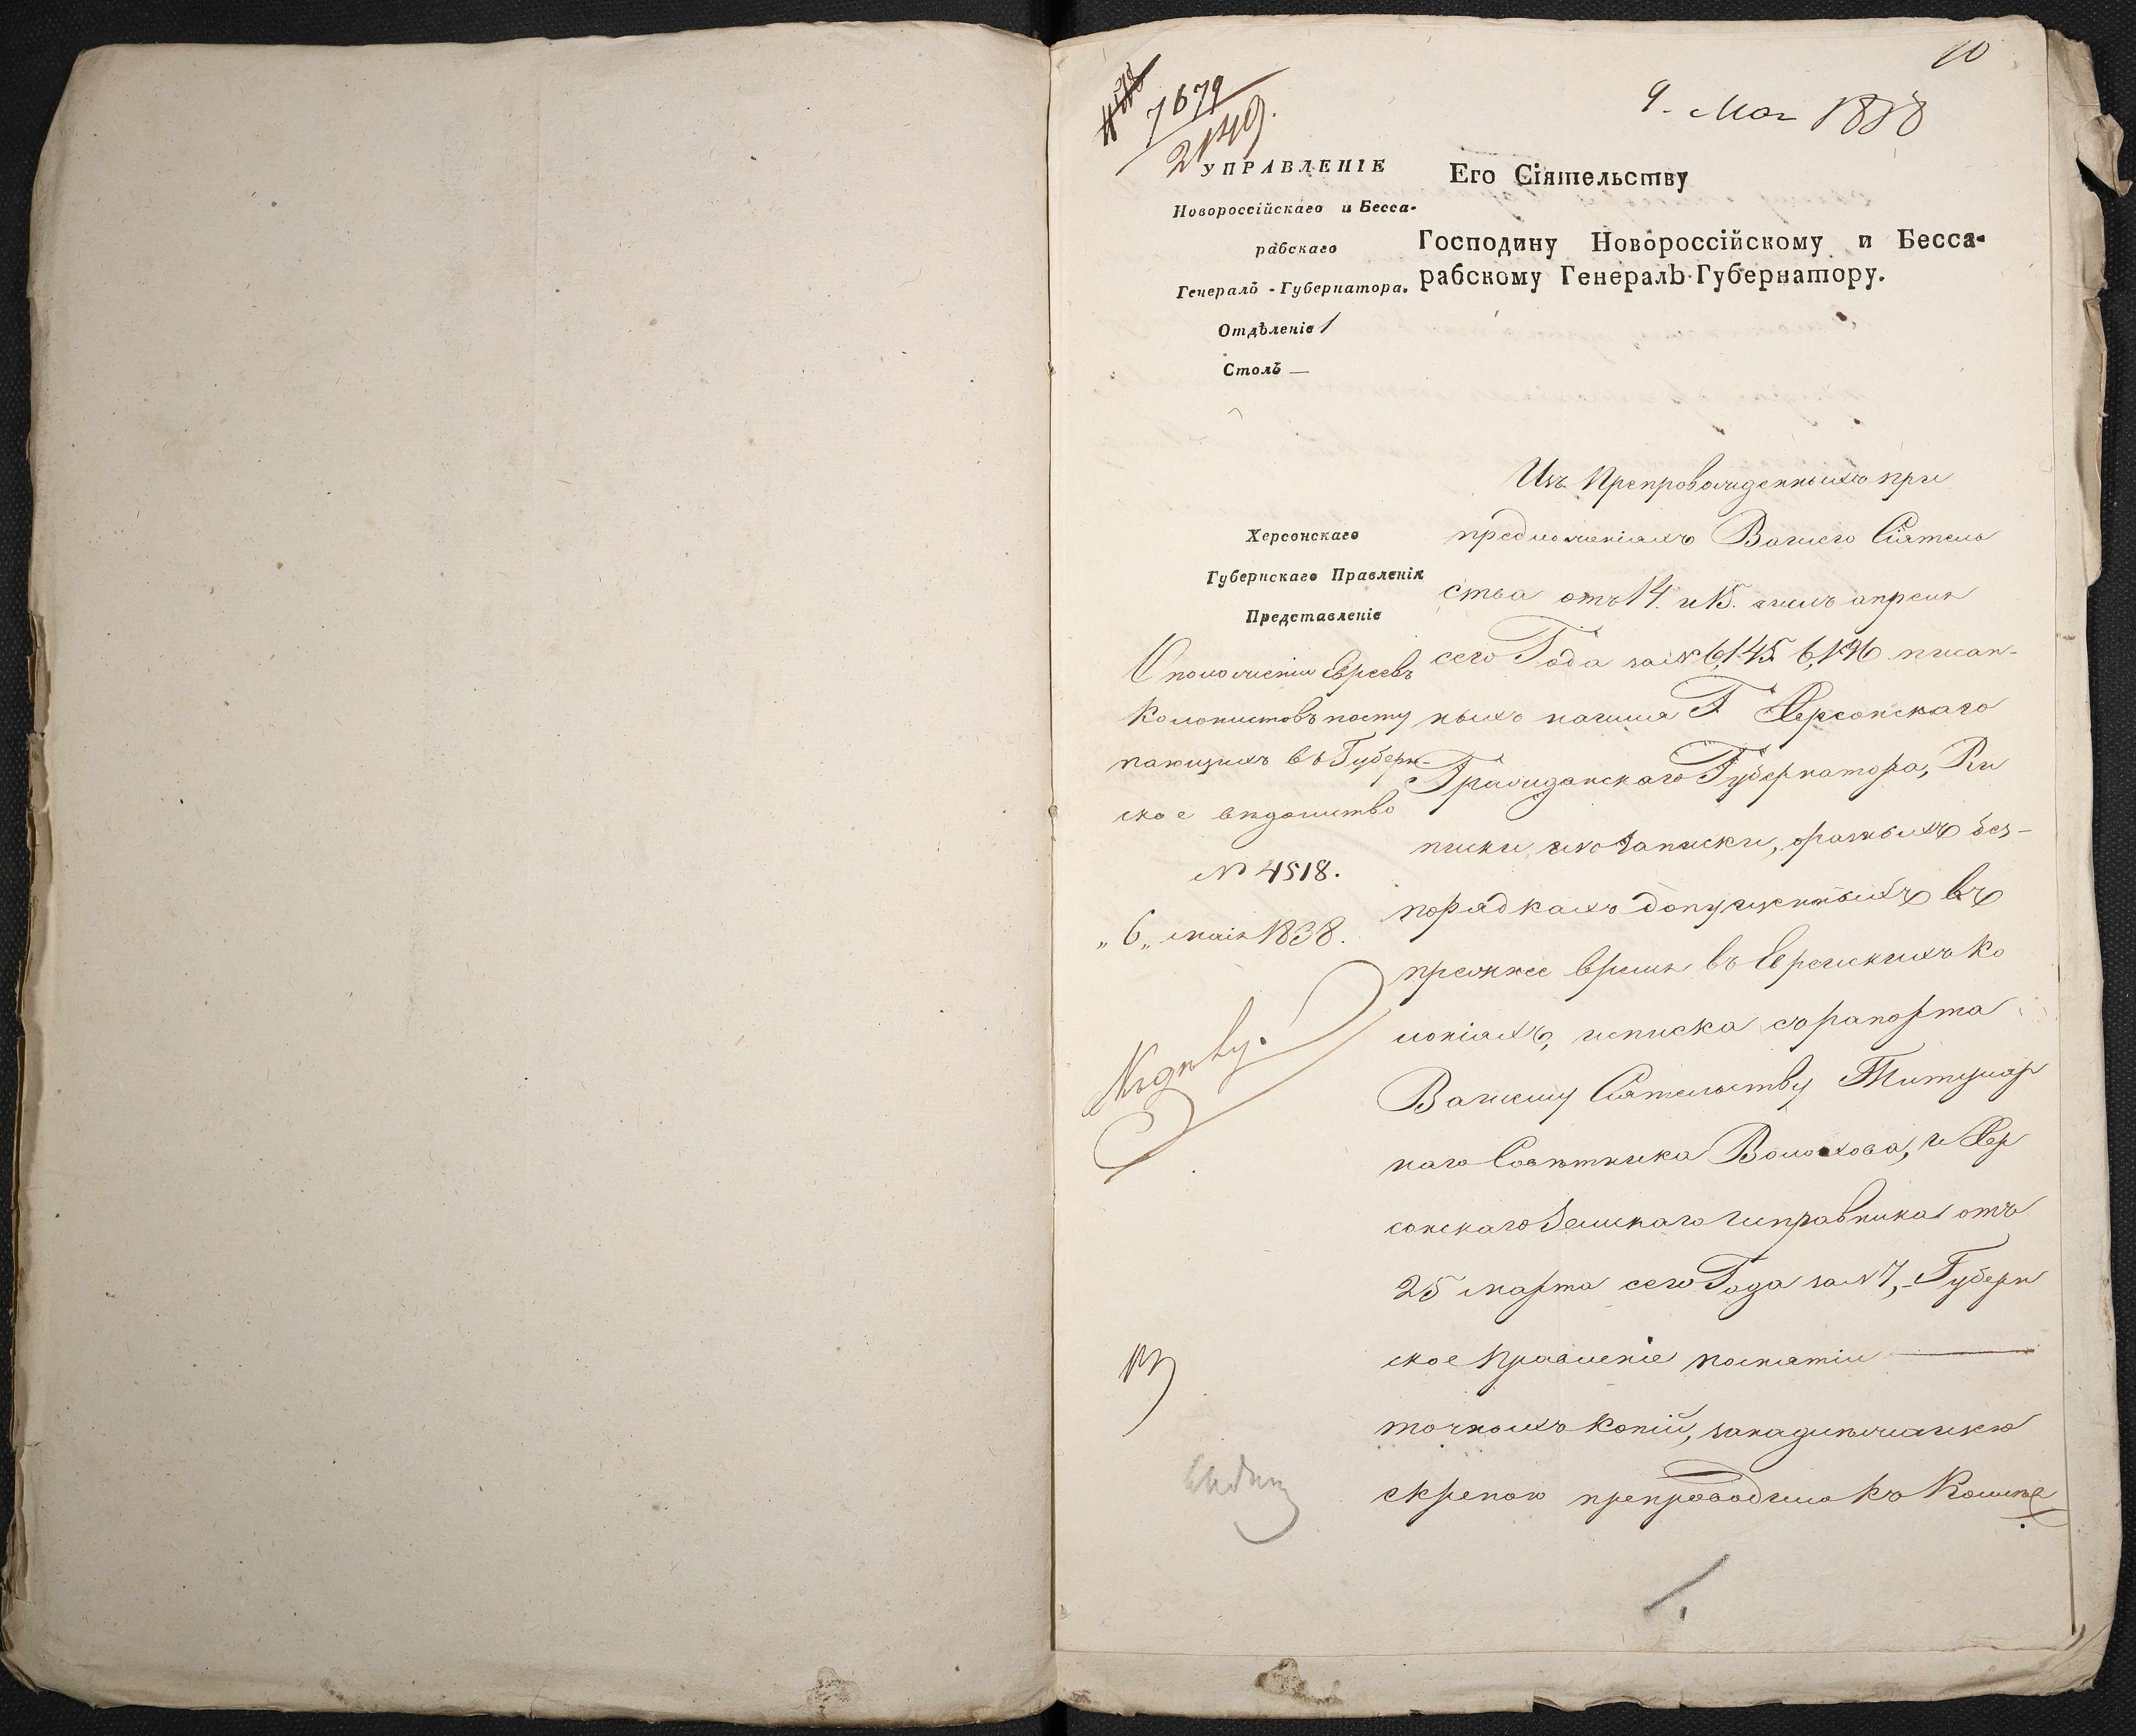 10
9. Мая 1838
7679
2149.
УПРАВЛЕНІЕ
Новороссійскаго и Бесса-
рабскаго
Генералъ-Губернатора.
Отдѣленіе 1
Столъ —
Его Сіятельству
Господину Новороссійскому и Бесса-
рабскому Генералъ-Губернатору.
Херсонскаго
Губернскаго Правленія
Представленіе
О положеніи Евреевъ
Колонистовъ посту
пающихъ въ Губерн-
ское вѣдомство
№ 4518.
„6„ маія 1838.
Изъ препровожденныхъ при
предложеніяхъ Вашего Сіятель
ства отъ 14. и 15. числъ апреля
сего Года за № 6,145 6,196 писан-
ныхъ на имя Г. Херсонскаго
Гражданскаго Губернатора,
записки, разныхъ без-
порядкахъ допущенныхъ въ
прежнее время въ Еврейскихъ Ко
лоніяхъ, списка съ рапорта
Вашему Сіятельству Титуляр
наго Совѣтника Волохова, и Хер
сонскаго Земскаго исправника отъ
25 марта сего Года за № 7, Губерн
ское Правленіе по снятіи
точныхъ копій, за надлежащею
скрепою препроводило къ